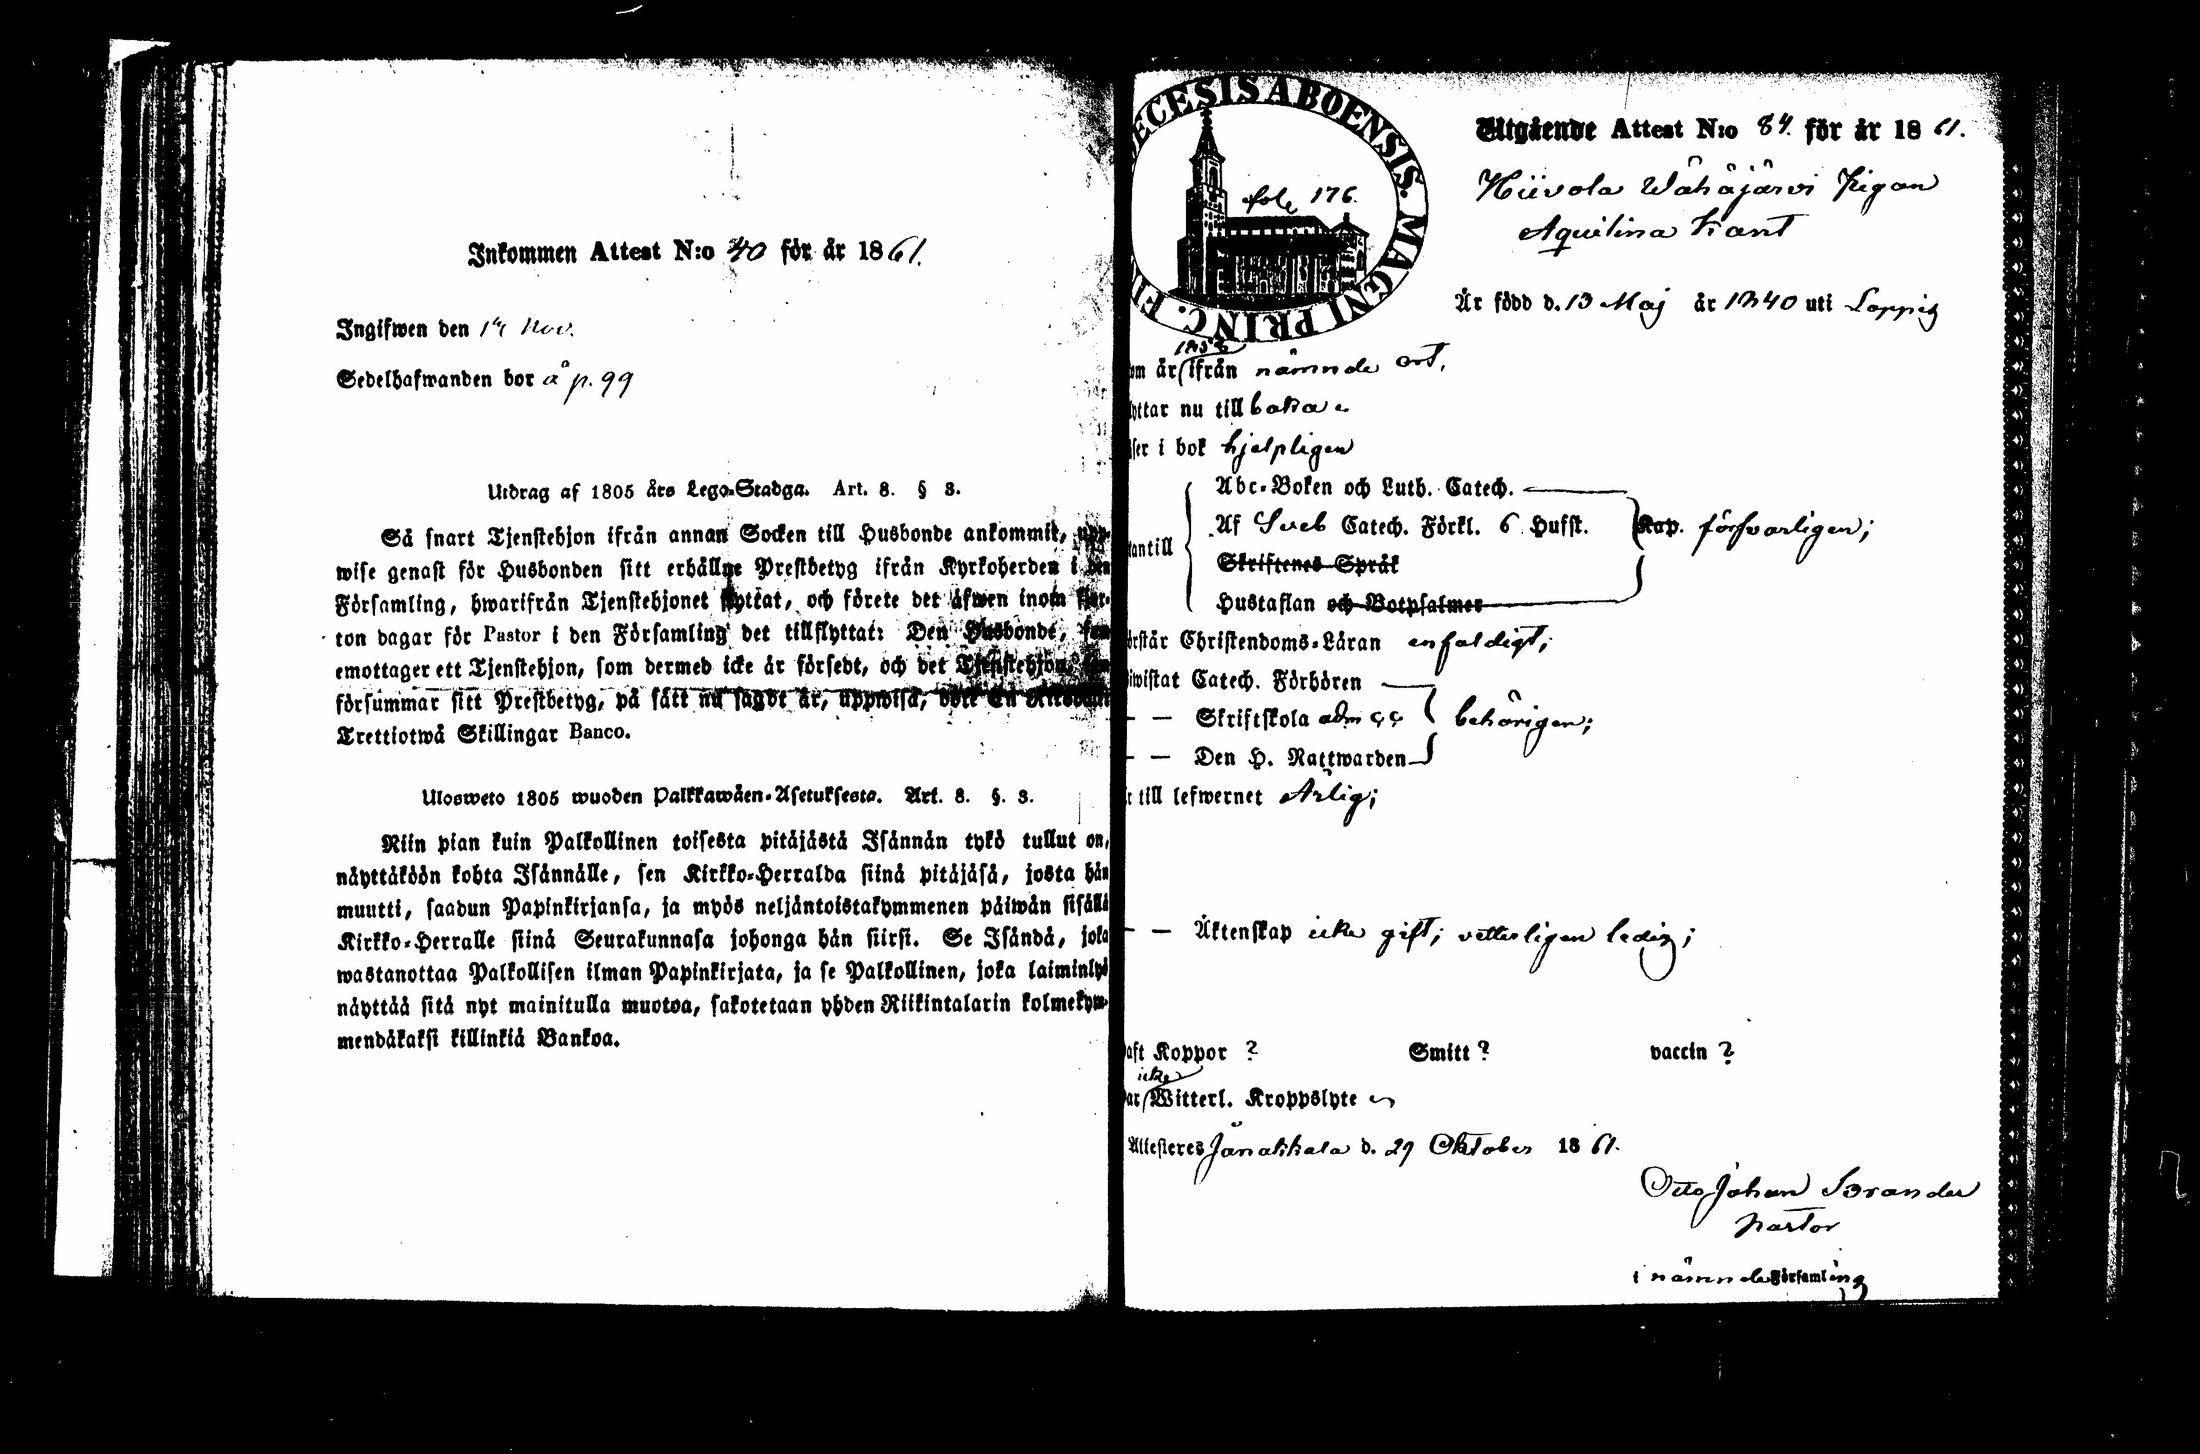 Inkommen Attest N:o 40 för år 1861.
Ingifwen den 14 Nov.
Sedelhafwanden bor å p. 99
Utdrag af 1805 års Lego-Stadga. Art. 8. § 3.
Så snart Tjenstehjon ifrån annan Socken till Husbonde ankommit, upp-
wise genast för Husbonden sitt erhållne Prestbetyg ifrån Kyrkoherden i den
Församling, hwarifrån Tjenstehjonet flyttat, och förete det äfwen inom fjor-
ton dagar för Pastor i den Församling det tillflyttat: Den Husbonde, som
emottager ett Tjenstehjon, som dermed icke är försedt, och det Tjenstehjon, som
försummar sitt Prestbetyg, på sätt nu sagdt är, uppwisa, böte En Riksdaler
Trettiotwå Skillingar Banco.
Ulosweto 1805 wuoden Palkkawäen-Asetuksesta. Art. 8. §. 3.
Niin pian kuin Palkollinen toisesta pitäjästä Isännän tykö tullut on,
näyttäköön kohta Isännälle, sen Kirkko-Herralda siinä pitäjäsä, josta hän
muutti, saadun Papinkirjansa, ja myös neljäntoistakymmenen päiwän sisällä
Kirkko-Herralle siinä Seurakunnasa johonga hän siirsi. Se Isändä, joka
wastanottaa Palkollisen ilman Papinkirjata, ja se Palkollinen, joka laiminlyö
näyttää sitä nyt mainitulla muotoa, sakotetaan yhden Riikintalarin kolmekym-
mendäkaksi killinkiä Bankoa.
ECESIS ABOENSIS. MAGNI PRINC. FI
fol. 176.
Utgående Attest N:o 84. för år 1861.
Hiivola Wähäjärvi Pigan
Aquilina Kant
Är född d. 13 Maj år 1840 uti Loppis
1858
om år ifrån nämnde ort,
yttar nu till baka
ser i bok hjelpligen
Abc-Boken och Luth. Catech.
antill Af Sveb Catech. Förkl. 6 Hufst. Kap. försvarligen;
Skriftenes Språk
Hustaflan och Botpsalmer
örstår Christendoms-Läran enfaldigt;
iwistat Catech. Förhören
— — Skriftskola adm behörigen;
— — Den H. Nattwarden
till lefwernet Ärlig;
— — Äktenskap icke gift; vetterligen ledig;
aft Koppor ? Smitt ? vaccin ?
icke
ar Witterl. Kroppslyte
Attesteres Janakkala d. 29 Oktober 1861.
Otto Johan Brander
Pastor
i nämnde Församling